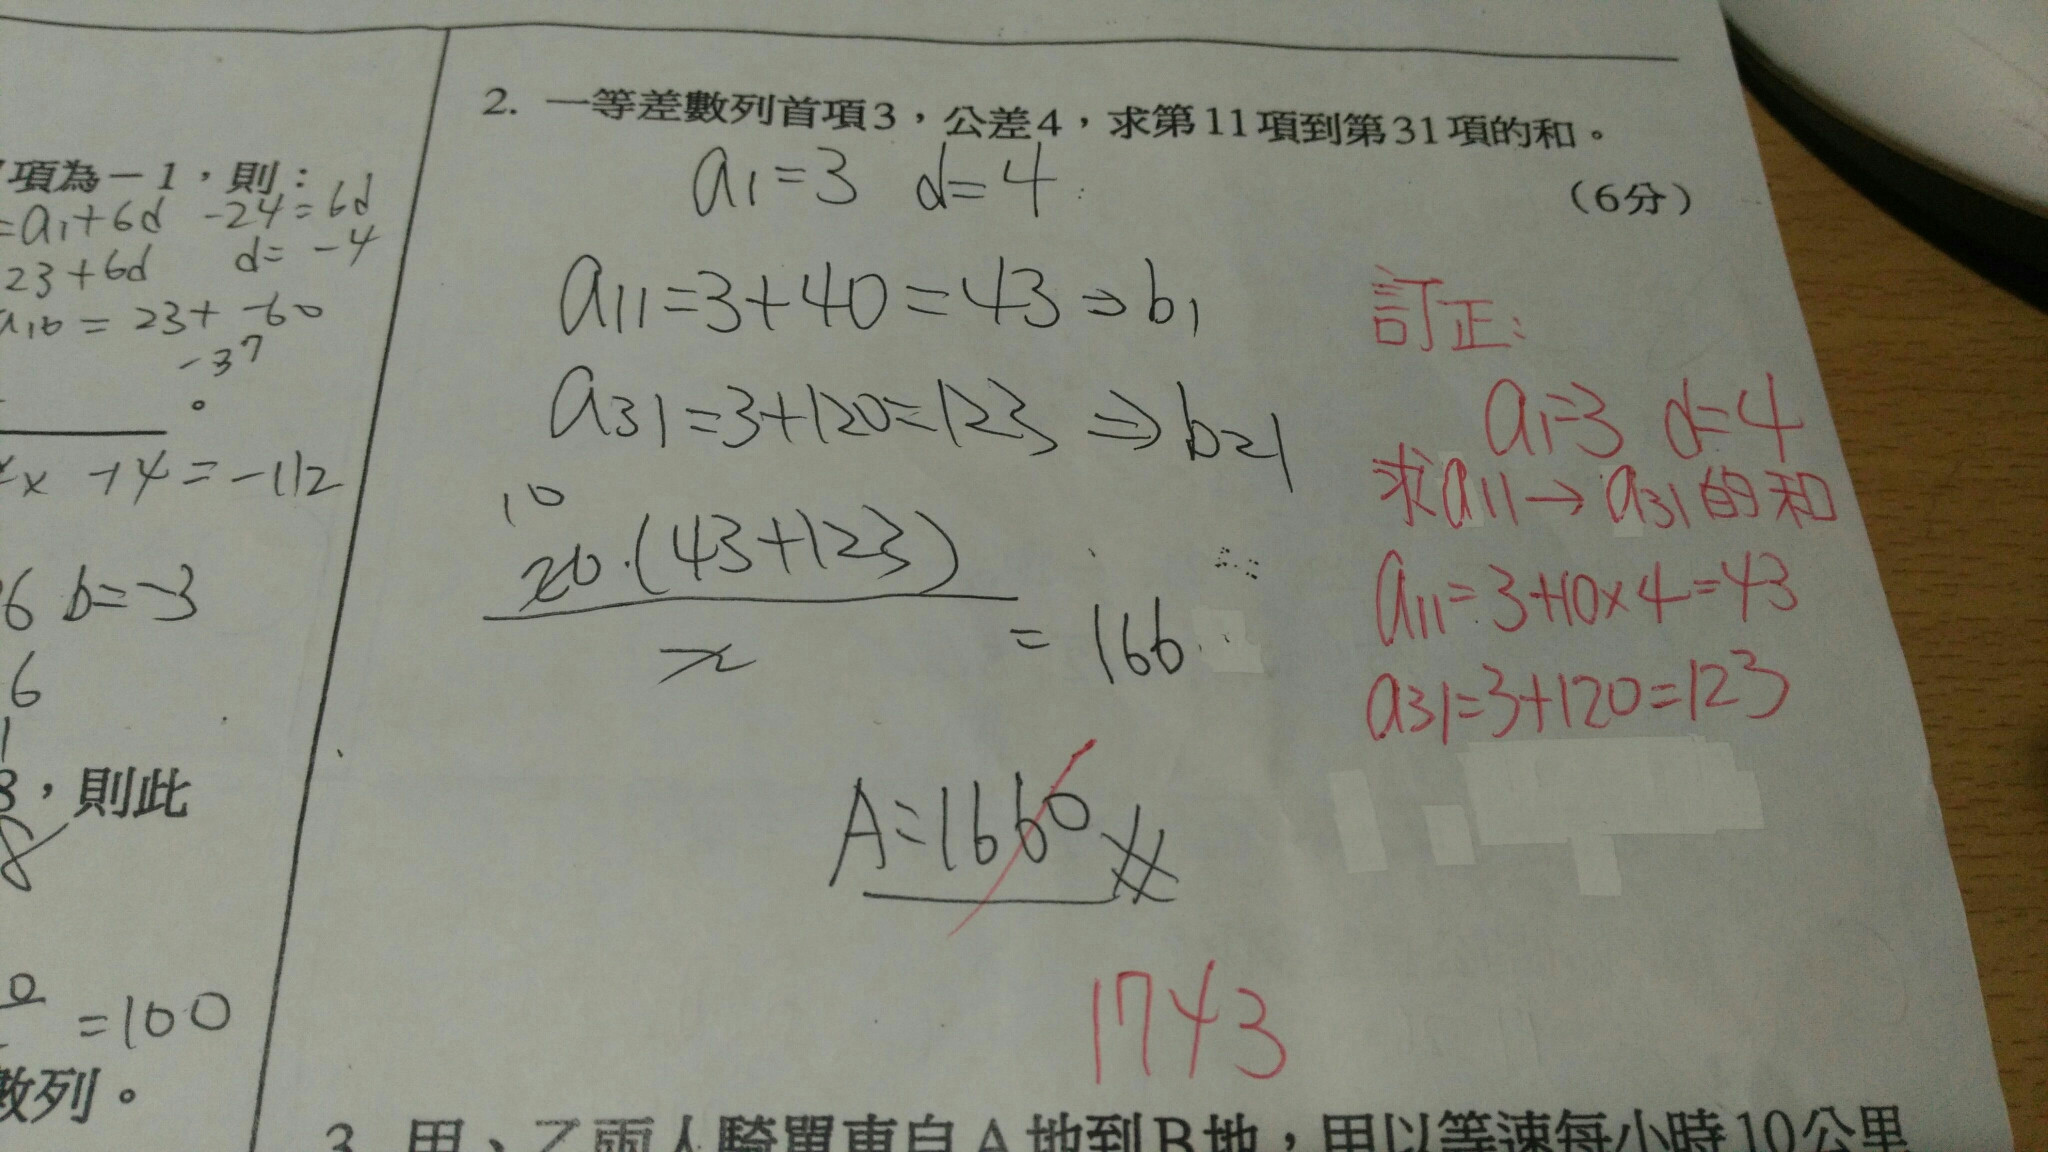 項為－1，則：
=a₁+6d -24=6d
23+6d d=-4
a₁₆ = 23+ -60
-37
。
x +4 = -112
6 b=-3
6
，則此
8
0
=100
數列。
2. 一等差數列首項3，公差4，求第11項到第31項的和。
（6分）
a₁=3 d=4
a₁₁=3+40=43⇒b₁
a₃₁=3+120=123⇒b₂₁
10
20·(43+123)
2
= 166
A=1660
1743
訂正:
a₁=3 d=4
求a₁₁→a₃₁的和
a₁₁=3+10×4=43
a₃₁=3+120=123
3. 甲、乙兩人騎單車自A地到B地，甲以等速每小時10公里